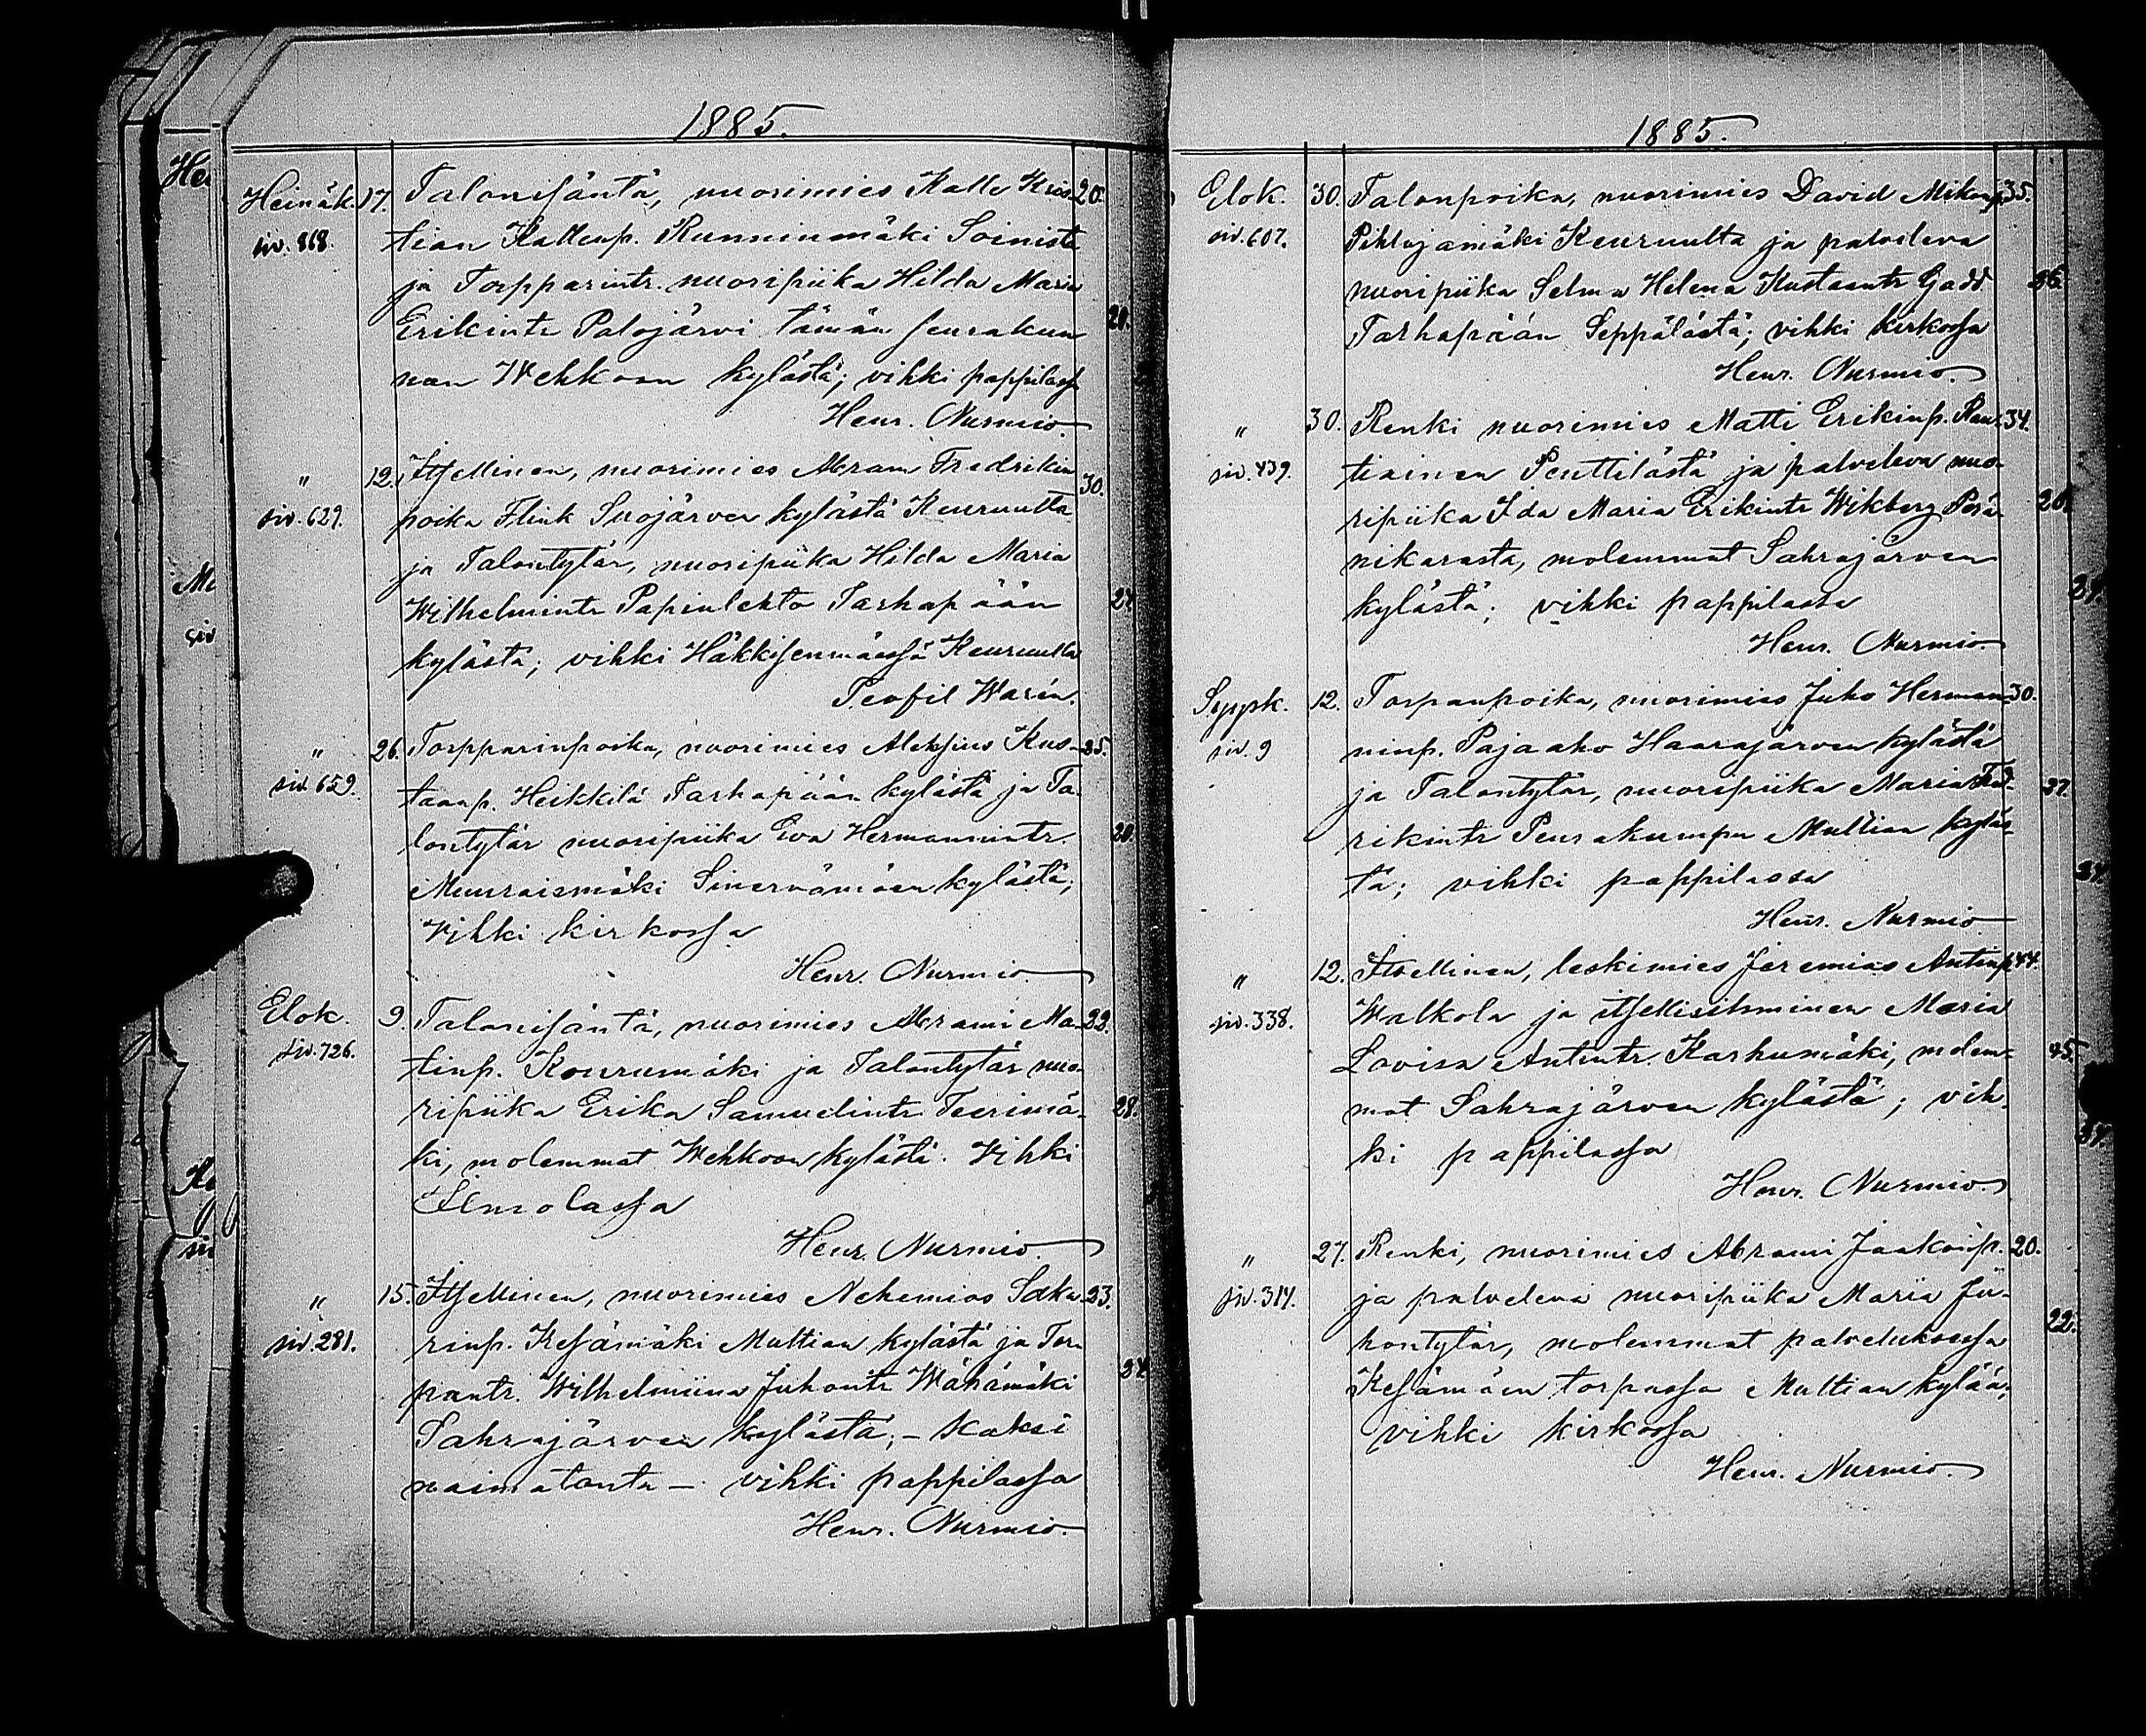 1885.
Heinäk. 17. Talonisäntä, nuorimies Kalle Kris- 20.
siv. 818. tian Kallenp. Runninmäki Soinista
ja Torpparintr. nuoripiika Hilda Maria
Erikintr Palojärvi tämän seurakun 20.
nan Wehkoon kylästä; vihki pappilassa
Henr. Nurmio.
" 12. Itsellinen, nuorimies Abram Fredrikin 30.
siv. 629. poika Flink Suojärven kylästä Keuruulta
ja Talontytär, nuoripiika Hilda Maria
Wilhelmintr Papinlehto Tarhapään 24
kylästä; vihki Häkkisenmäessä Keuruulla
Teofil Warén.
" 26. Torpparinpoika, nuorimies Aleksius Kus- 25.
siv. 659. taanp. Heikkilä Tarhapään kylästä ja Ta-
lontytär nuoripiika Eva Hermannintr. 20.
Muuraismäki Sinervämäen kylästä;
Vihki kirkossa
Henr. Nurmio
Elok. 9. Talonisäntä, nuorimies Abrami Ma- 22.
siv. 726. tinp. Kourumäki ja Talontytär nuo-
ripiika Erika Samuelintr Teerimä- 28.
ki, molemmat Wehkoon kylästä. Vihki
Ilmolassa
Henr. Nurmio.
" 15. Itsellinen, nuorimies Nehemias Saka- 23.
siv. 281. rinp. Kesämäki Multian kylästä ja Tor-
pantr. Wilhelmiina Juhontr Wähämäki 24
Sahrajärven kylästä; – kaksi
naimatonta – vihki pappilassa
Henr. Nurmio.
1885.
Elok. 30. Talonpoika, nuorimies David Mikonp. 35.
siv. 607. Pihlajamäki Keuruulta ja palveleva
nuoripiika Selma Helena Kustaantr Gadd 26
Tarhapään Seppälästä; vihki kirkossa
Henr. Nurmio.
" 30. Renki nuorimies Matti Erikinp. Rau- 34.
siv. 439. tiainen Penttilästä ja palveleva nuo-
ripiika Ida Maria Erikintr Wikberg Perä- 20.
nikarasta, molemmat Sahrajärven
kylästä; vihki pappilassa 34.
Henr. Nurmio.
Syysk. 12. Torpanpoika, nuorimies Juho Herman- 30.
siv. 9 ninp. Pajaaho Haarajärven kylästä
ja Talontytär, nuoripiika Maria Fred- 37.
rikintr Peurakumpu Multian kyläs-
tä; vihki pappilassa 34
Henr. Nurmio
" 12. Itsellinen, leskimies Jeremias Antinp. 44.
siv. 338. Walkola ja itsellisihminen Maria
Lovisa Antintr. Karhumäki, molem- 45.
mat Sahrajärven kylästä; vih-
ki pappilassa 34.
Henr. Nurmio.
" 27. Renki, nuorimies Abrami Jaakonp. 20.
siv. 314. ja palveleva nuoripiika Maria Ju-
hontytär, molemmat palveluksessa 22.
Kesämäen torpassa Multian kylää;
vihki kirkossa
Henr. Nurmio.